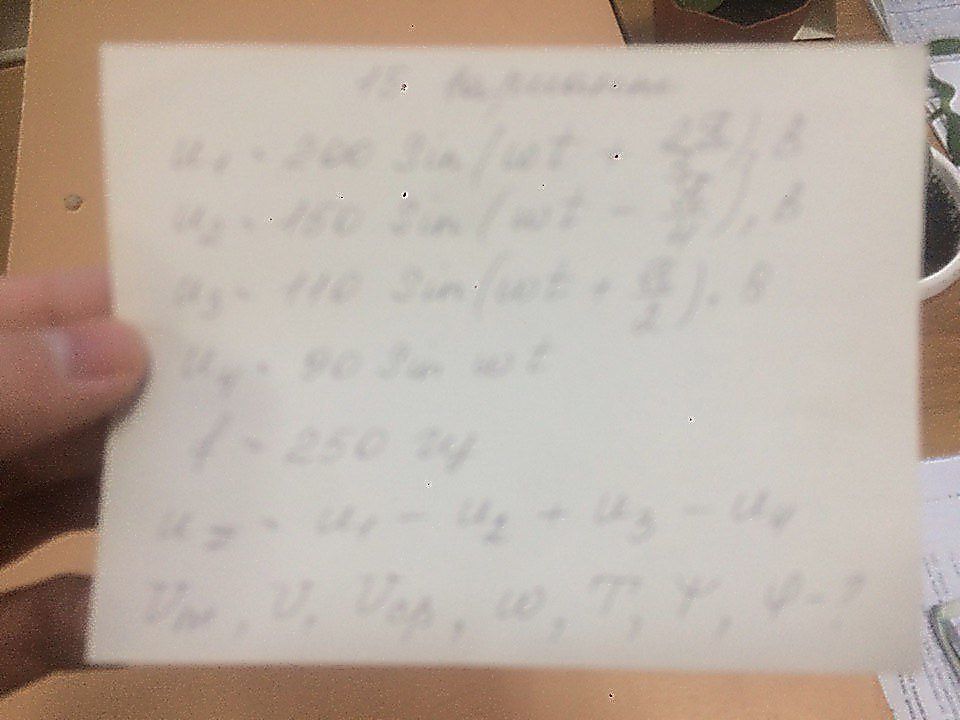 15 вариант
u1 = 200 Sin(wt
u2 = 150 Sin(wt -
u3 = 110 Sin(wt + π/2), В
u4 = 90 Sin wt
f = 250 Гц
u = u1 - u2 + u3 - u4
Um, U, Uср, w, T, Ψ, φ-?